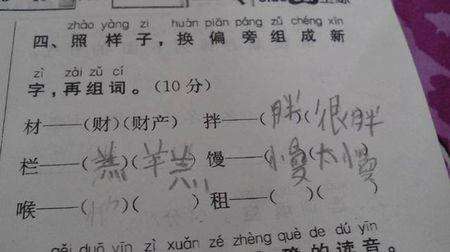 zhào yàng zi huàn piān páng zǔ chéng xīn
四、照样子,换偏旁组成新
zì zài zǔ cí
字,再组词。(10分)
材——(财)(财产) 拌——(胖)(很胖
栏——( )(羊 ) 馒——(慢)(太慢
喉——( )( ) 租——( )( )
duō yīn zì xuǎn zé zhèng què de dú yīn
的读音。